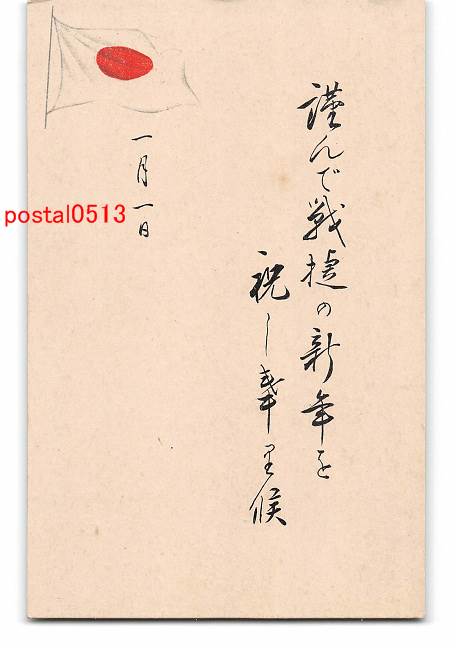 謹んで戦捷の新年を
祝し奉里候
一月一日
postal0513